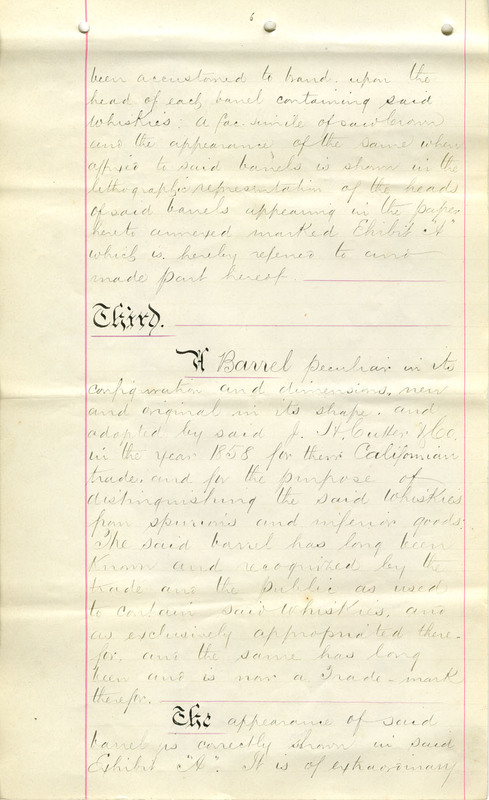 6
been accustomed to brand upon the
head of each barrel containing said
Whiskies: a fac simile of said Crown
and the appearance of the same when
affixed to said barrels is shown in the
lithographic representation of the heads
of said barrels appearing in the paper
hereto annexed marked Ehibit "A"
which is hereby refered to and
made part hereof.
Third.
A Barrel peculiar in its
configuration and dimensions, new
and original in its shape. and
adopted by said J. H. Cutter & Co.
in the year 1858 for their Californian
trade. and for the purpose of
distinguishing the said Whiskies
from spurious and inferior goods:
The said barrel has long been
Known and recognized by the
trade and the public as used
to contain said Whiskies, and
as exclusively appropriated there-
for. and the same has long
been and is now a Trade-mark
therefor.
The appearance of said
barrel is correctly shown in said
Exhibit "A". It is of extraordinary